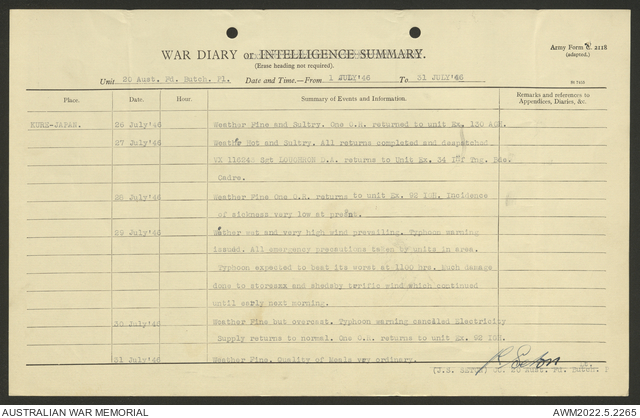 WAR DIARY or INTELLIGENCE SUMMARY.
(Erase heading not required).
Army Form C. 2118
(adapted.)
Unit 20 Aust. Fd. Butch. Pl. Date and Time.—From 1 JULY'46 To 31 JULY'46
Place. Date. Hour. Summary of Events and Information. Remarks and references to Appendices, Diaries, &c.
KURE-JAPAN. 26 July'46 Weather Fine and Sultry. One O.R. returned to unit Ex. 130 AGH.
27 July'46 Weathr Hot and Sultry. All returns completed and despatched.
VX 116245 Sgt D.A. returns to Unit Ex. 34 Inf Tng. Bde.
Cadre.
28 July'46 Weather Fine One O.R. returns to unit Ex. 92 IGH. Incidence
of sickness very low at present.
29 July'46 Wether wet and very high wind prevailing. Typhoon warning
issued. All emergency precautions taken by units in area.
Typhoon expected to beat its worst at 1100 hrs. Much damage
done to storesxx and shedsby terrific wind which continued
until early next morning.
30 July'46 Weather Fine but overcast. Typhoon warning cancelled Electricity
Supply returns to normal. One O.R. returns to unit Ex. 92 IGH.
31 July'46 Weather Fine. Quality of Meals very ordinary.
(J.S. OC. 20 Aust. Fd. Butch. P
AUSTRALIAN WAR MEMORIAL AWM2022.5.2265